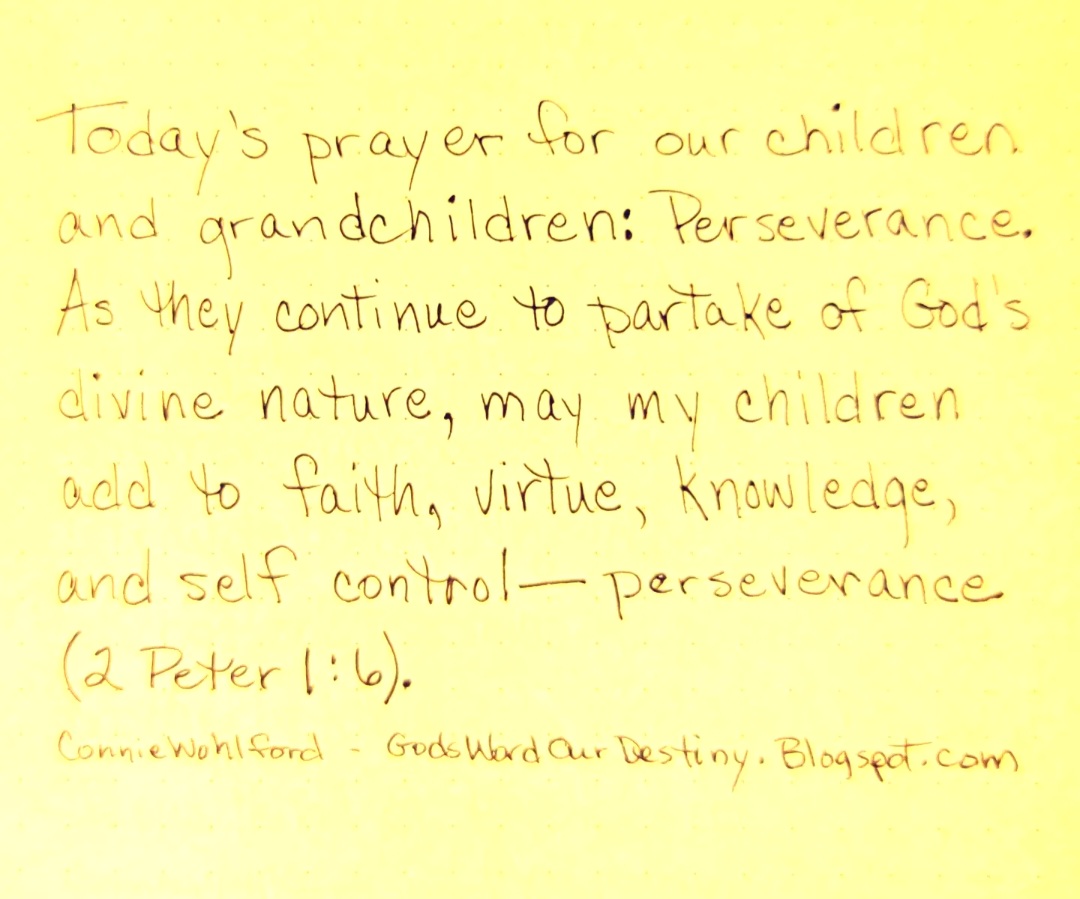 Today's prayer for our children
and grandchildren: Perseverance.
As they continue to partake of God's
divine nature, may my children
add to faith, virtue, knowledge,
and self control—perseverance
(2 Peter 1:6).
ConnieWohlford - GodsWordOurDestiny.Blogspot.com